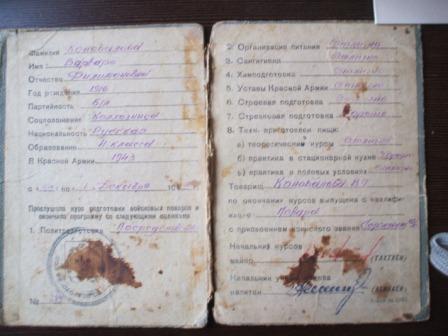 Фамилия Коновалова
Имя Варвара
Отчество Филимоновна
Год рождения 1916
Партийность б/п
Соцположение Колхозница
Национальность Русская
Образование 4 класса
В Красной Армии 1943
с по Декабря
Прослушала курс подготовки войсковых поваров и
окончила программу со следующими оценками
1. Политподготовка Посредств.
№
2. Организация питания Отлично
3. Сангигиена Отлично
4. Химподготовка Отлично
5. Уставы Красной Армии Отлично
6. Строевая подготовка
7. Стрелковая подготовка Хорошо
8. Техн. приготовлен. пищи:
а) теоретическ. курс Отлично
б) практика в стационарной кухне
в) практика в полевых условиях
Товарищ Коновалова В.Ф.
по окончании курсов выпущена с квалифи-
кацией Повара
с присвоением воинского звания
Начальник курсов
майор
Начальник
капитан